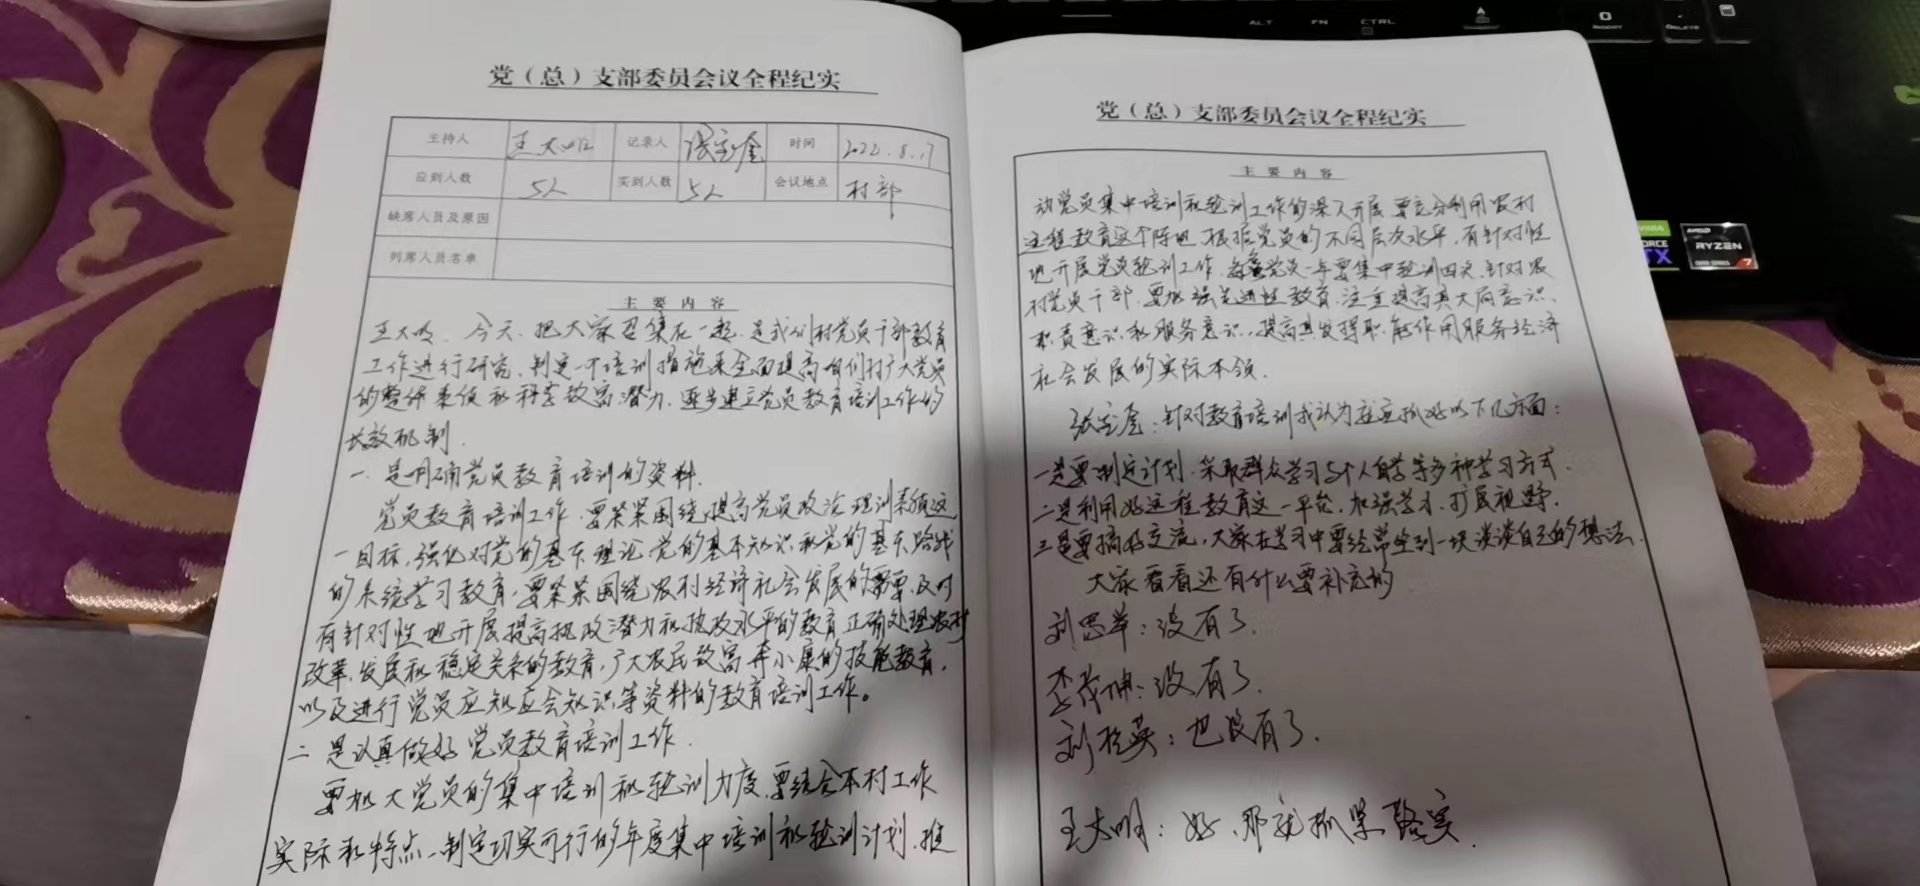 党（总）支部委员会议全程纪实
主持人 王大明 记录人 张宝金 时间 2022.8.17
应到人数 5人 实到人数 5人 会议地点 村部
缺席人员及原因
列席人员名单
主要内容
王大明：今天，把大家召集在一起，是我们村党员干部教育
工作进行研究，制定一个培训措施来全面提高咱们村广大党员
的整体素质和科学致富潜力，逐步建立党员教育培训工作的
长效机制.
一.是明确党员教育培训的资料.
党员教育培训工作，要紧紧围绕提高党员政治理训素质这
一目标，强化对党的基本理论 党的基本知识和党的基本路线
的系统学习教育，要紧紧围绕农村经济社会发展的需要，及时
有针对性地开展提高执政潜力和执政水平的教育 正确处理农村
改革、发展和稳定关系的教育，广大农民致富奔小康的技能教育，
以及进行党员应知应会知识等资料的教育培训工作。
二是认真做好党员教育培训工作.
要加大党员的集中培训和轮训力度，要结合本村工作
实际和特点，制定切实可行的年度集中培训和轮训计划，推
党（总）支部委员会议全程纪实
主要内容
动党员集中培训和轮训工作的深入开展 要充分利用农村
远程教育这个阵地，根据党员的不同层次水平，有针对性
地开展党员轮训工作，每党员一年要集中轮训四天，针对农
村党员干部，要加强先进性教育，注重提高其大局意识、
职责意识和服务意识，提高其发挥职能作用服务经济
社会发展的实际本领.
张宝金：针对教育培训我认为应抓好以下几方面：
一是要制定计划，采取群众学习与个人自学等多种学习方式.
二是利用好远程教育这一平台，加强学习，扩展视野.
三是要搞好交流，大家在学习中要经常坐到一块谈谈自己的想法.
大家看看还有什么要补充的
刘思举：没有了.
李茂坤：没有了.
刘桂英：也没有了.
王大明：好，那就抓紧落实.
ALT FN CTRL
DELETE
AMD
RYZEN
7